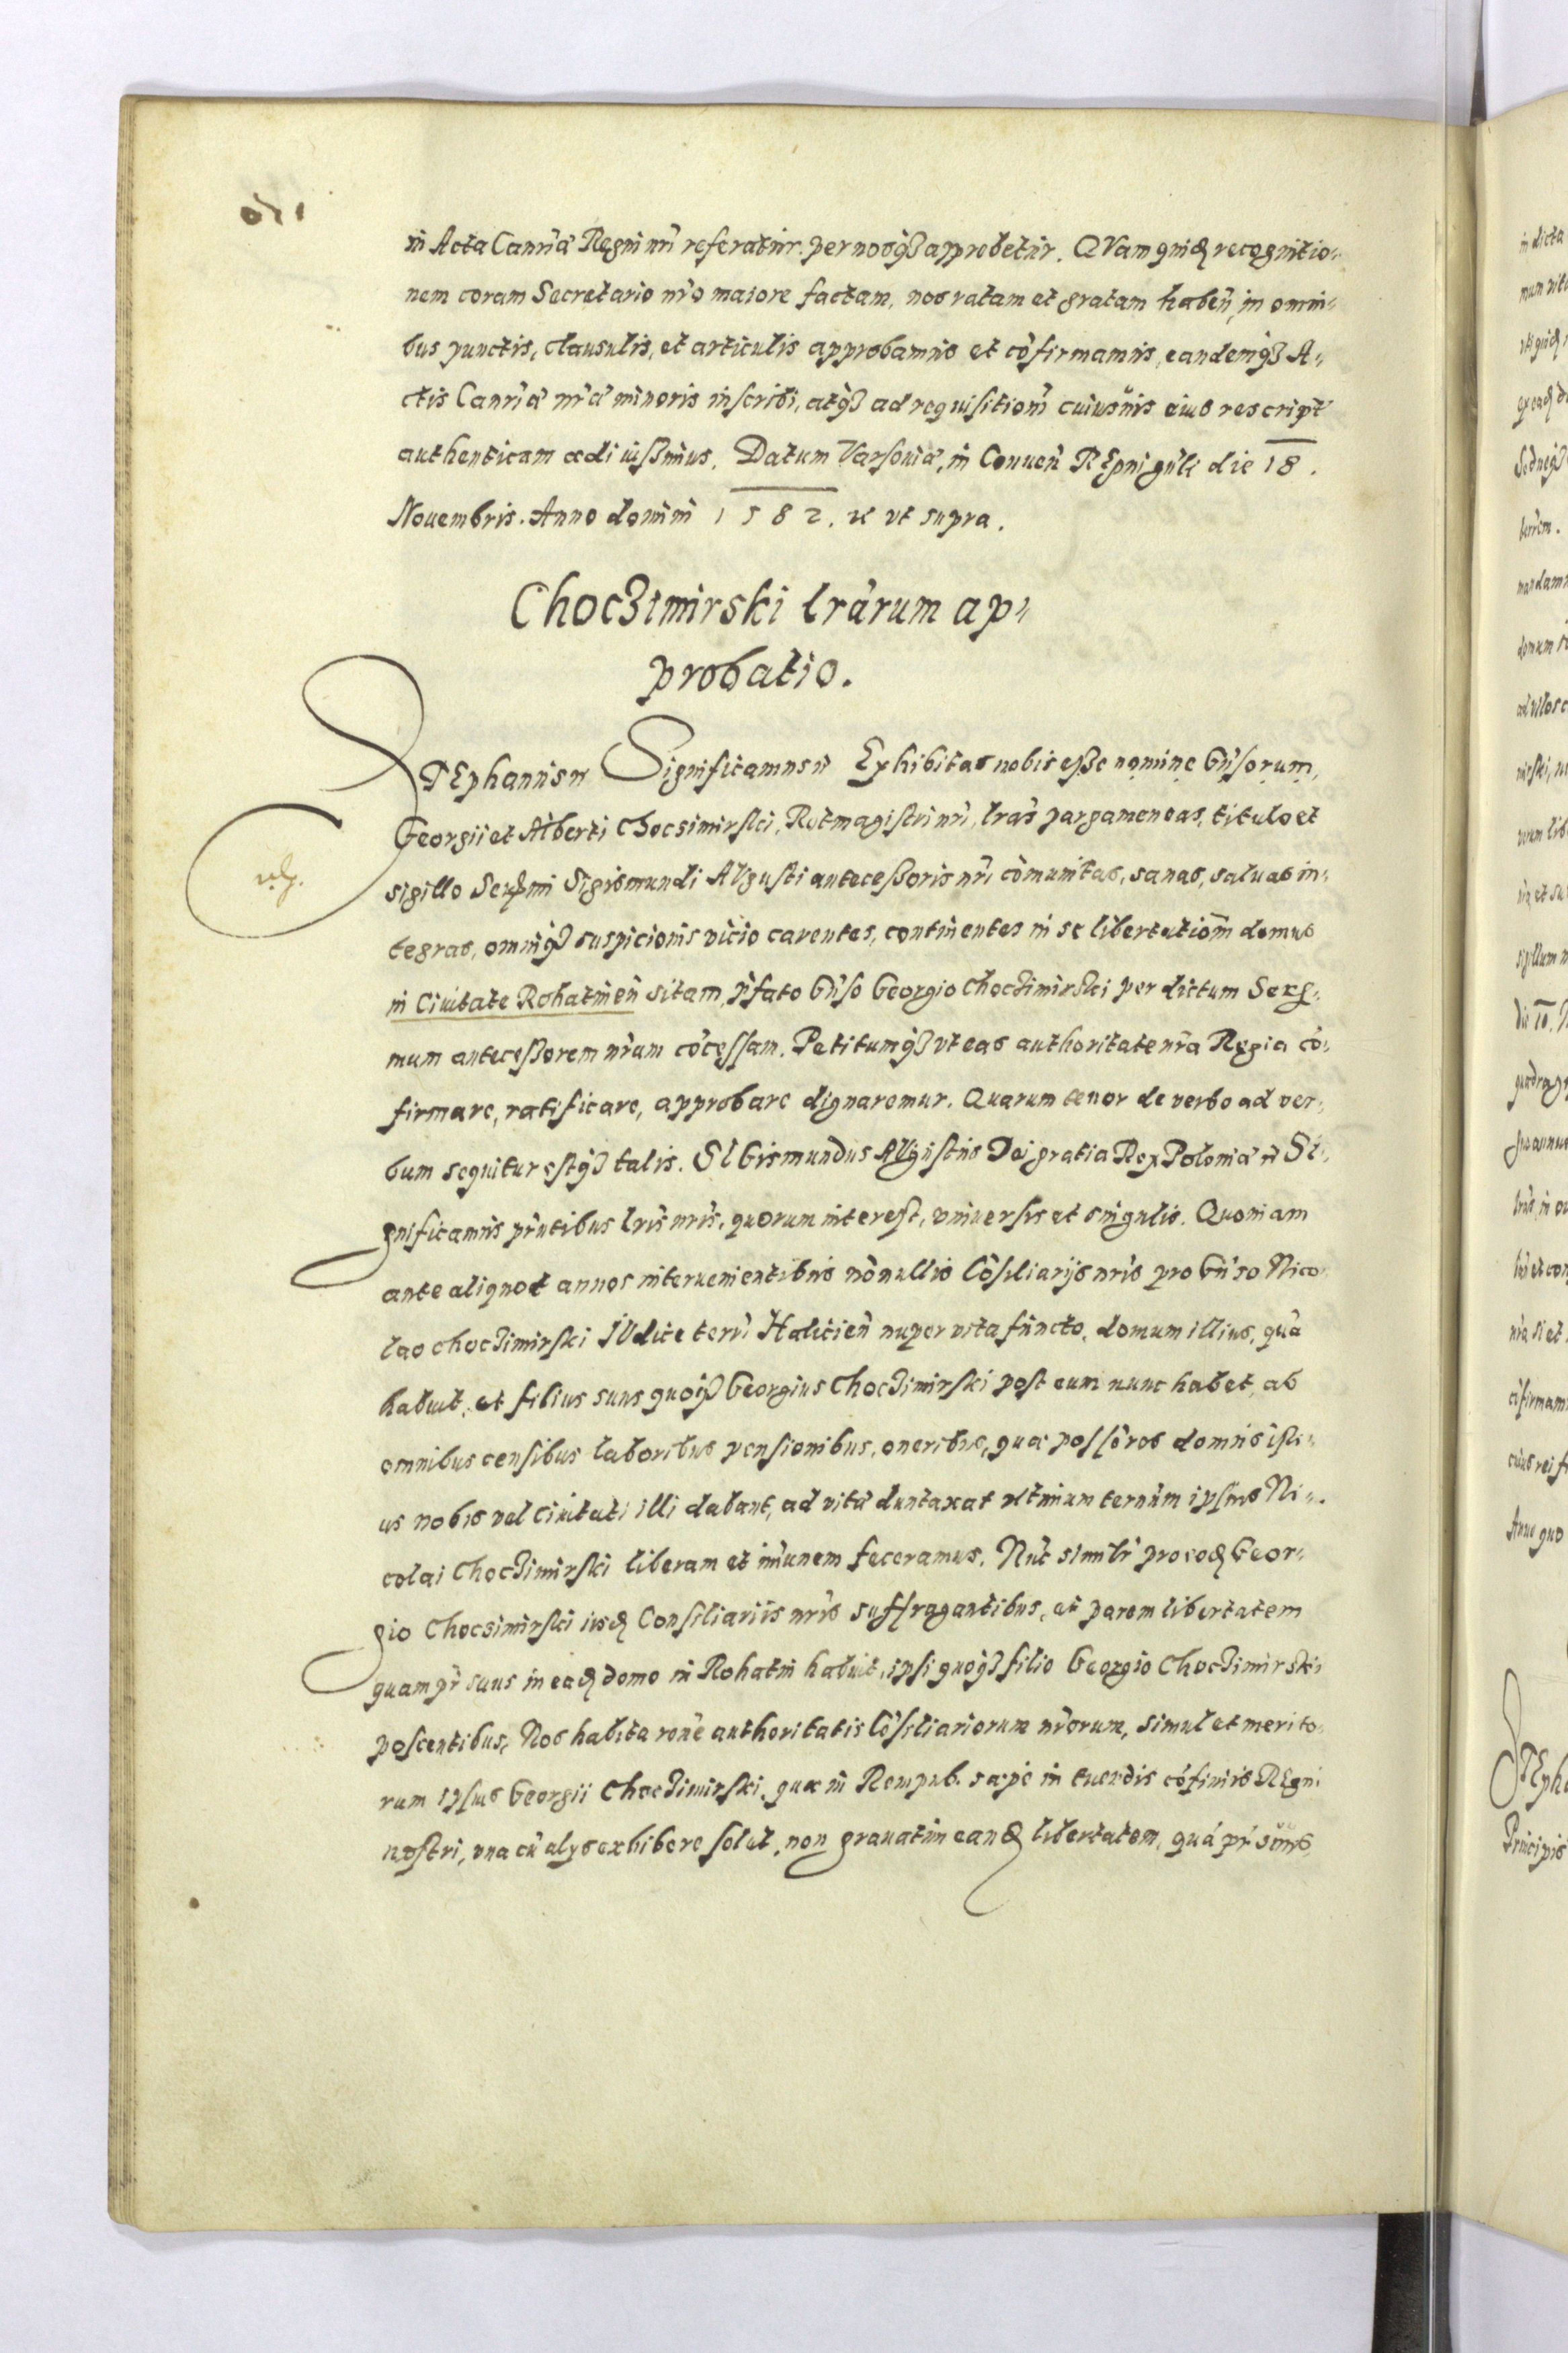 in Acta Canr̃iæ Regni nr̃i referatur. per nosq́ꝫ approbetur. QVam quidē recognitio⸗
nem coram Secretario nr̃o maiore factam, nos ratam et gratam haben̄, in omni⸗
bus punctis, clausulis, et articulis approbamus et cōfirmamus, eandemq́ꝫ A⸗
ctis Canr̃iæ nr̃æ minoris inscribi, atq́ꝫ ad requisitionē cuiusuis eius rescript̄
authenticam ædi iußimus. Datum Varsouiæ, in Conuen̄ REgni gn̄li die 18.
Nouembris. Anno domini 1582. ꝛc vt supra.
Choc3imirski lr̃arum ap⸗
probatio.
STEphanus ꝛc Significamus ꝛc Exhibitas nobis eße nomine Gn̄sorum,
Georgii et Alberti Chocsimirski, Rotmagistri nr̃i, lr̃as pargameneas, titulo et
sigillo Serꝫmi Sigismundi AVgusti anteceßoris nr̃i cōmunitas, sanas, saluas in⸗
tegras, omniq́ꝫ suspicionis vicio carentes, continentes in se libertationē domus
in Ciuitate Rohatinen̄ sitam, p̃fato Gn̄so Georgio Choc3imirski per dictum Serꝫ⸗
mum anteceßorem nr̃um cōceſſam. Petitumq́ꝫ vt eas authoritate nr̃a Regia cō⸗
firmare, ratificare, approbare dignaremur. Quarum tenor de verbo ad ver⸗
bum sequitur estq́ꝫ talis. SIGismundus AVgustus Dei gratia Rex Poloniæ ꝛc SI⸗
gnificamus pr̃ntibus lr̃is nr̃is, quorum interest, vniuersis et singulis. Quoniam
ante aliquot annos interuenientibus nōnullis Cōsiliarijs nr̃is pro Gn̄so Nico
lao Choc3imirski IVdice terr̃ Halicien̄ nuper vita functo, domum illius, quā
habuit, et filius suus quoq́ꝫ Georgius Choc3imirski post eum nunc habet, ab
omnibus censibus laboribus pensionibus, oneribus, quæ poſſōres domus isti⸗
us nobis vel Ciuitati illi dabant, ad vitæ duntaxat vltimum ternūm ipsius Ni⸗
colai Choc3imirski liberam et im̄unem feceramus. Nūc similr̃ pro eodē Geor⸗
gio Chocsimirski iisdē Consiliariis nr̃is suffragantibus, et parem libertatem
quam pr̃ suus in eadē domo in Rohatin habuit, ipsi quoq́ꝫ filio Georgio Choc3imirski
poscentibus, Nos habita rōne authoritatis Cōsiliariorum nr̃orum, simul et merito⸗
rum ipsius Georgii Choc3imirski, quæ in Rempub. sæpe in tuendis cōfiniis REgni
nostri, vna cū alijs exhibere solet, non grauatim eandē libertatem, quā pr̃ suus